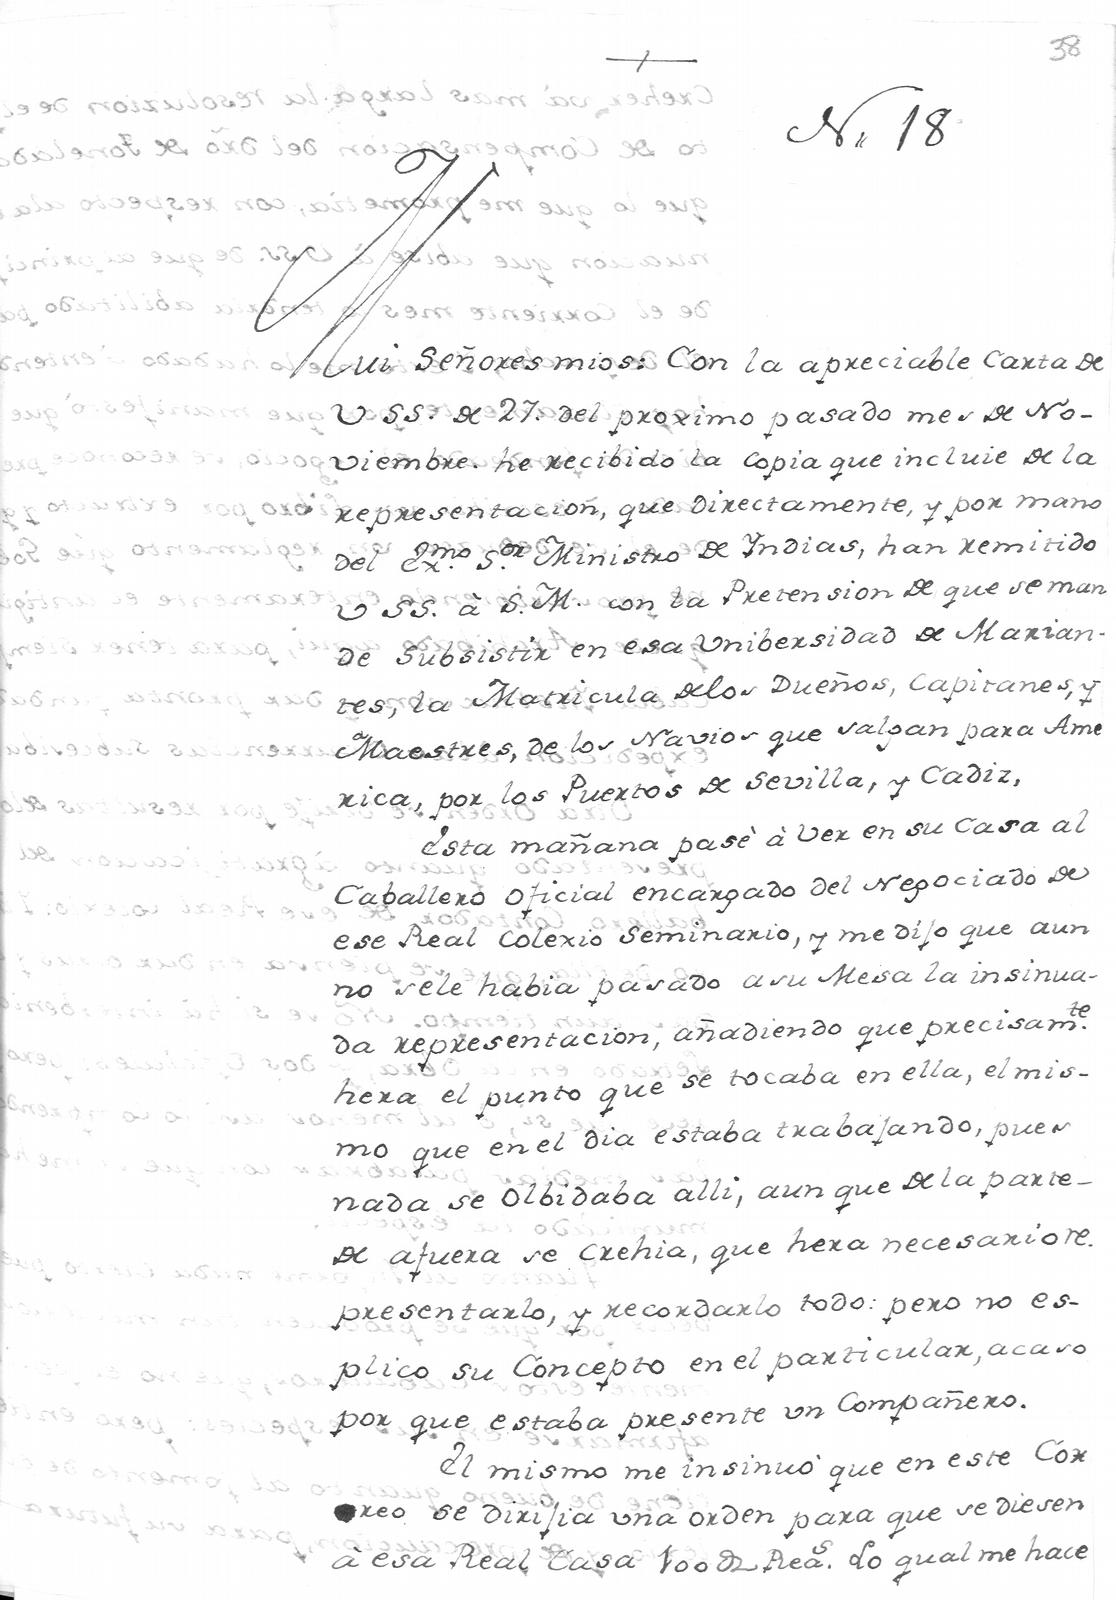 38
N.. 18
Mui Señores mios: Con la apreciable Carta de
V SS. de 27. del proximo pasado mes de No-
viembre. he recibido la copia que incluie de la
representacion, que directamente, y por mano
del Exmo. Sor. Ministro de Yndias, han remitido
V SS. à S. M. con la Pretension de que se man
de subsistir en esa Vnibersidad de Marian-
tes, la Matricula delos Dueños, Capitanes, y
Maestres, de los Navios que salgan para Ame
rica, por los Puertos de Sevilla, y Cadiz,
Esta mañana pasè à Ver en su Casa al
Caballero Oficial encargado del Negociado de
ese Real Colexio Seminario, y me dijo que aun
no sele habia pasado a su Mesa la insinua-
da representacion, añadiendo que precisamte.
hera el punto que se tocaba en ella, el mis-
mo que en el dia estaba trabajando, pues
nada se Olbidaba alli, aun que de la parte-
de afuera se crehia, que hera necesario re.
presentarlo, y recordarlo todo: pero no es-
plico su Concepto en el particular, acaso
por que estaba presente vn Compañero.
El mismo me insinuò que en este Cor
reo se dirijia vna orden para que se diesen
à esa Real Casa Reas. Lo qual me hace